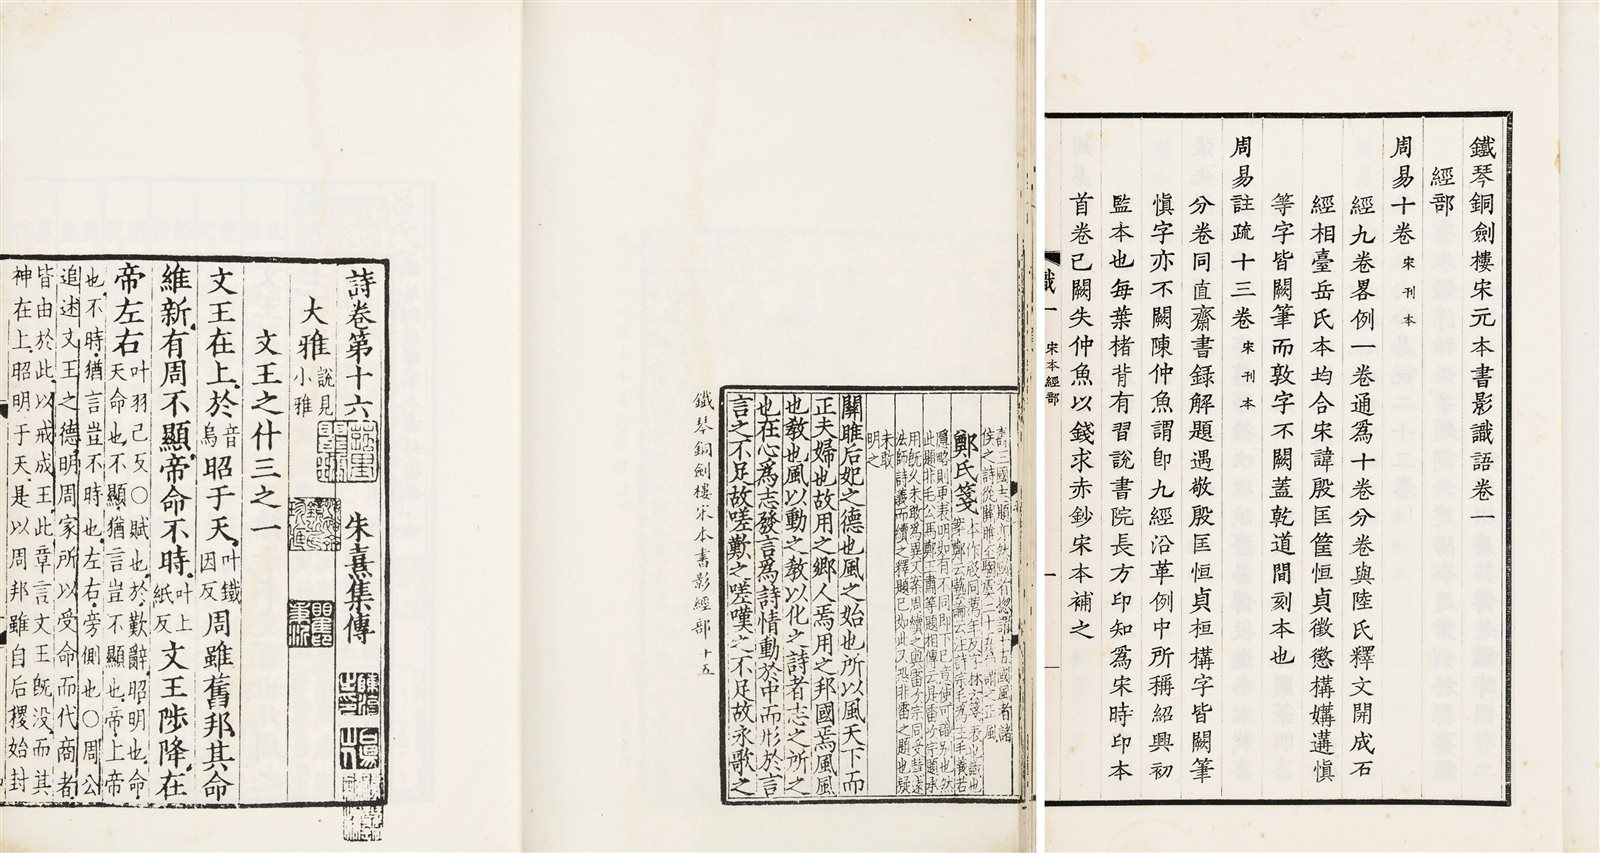 鐵琴銅劍樓宋元本書影識語卷一
經部
周易十卷宋刊本
經九卷畧例一卷通爲十卷分卷與陸氏釋文開成石
經相臺岳氏本均合宋諱殷匡筐恒貞徵懲構媾遘愼
等字皆闕筆而敦字不闕蓋乾道間刻本也
周易註疏十三卷宋刊本
分卷同直齋書録解題遇敬殷匡恒貞桓構字皆闕筆
愼字亦不闕陳仲魚謂卽九經沿革例中所稱紹興初
監本也每葉楮背有習說書院長方印知爲宋時印本
首卷已闕失仲魚以錢求赤鈔宋本補之
識一
宋本經部
一
鄭氏箋
未敢
明之
關雎后妃之德也風之始也所以風天下而
正夫婦也故用之鄉人焉用之邦國焉風風
也敎也風以動之敎以化之詩者志之所之
也在心爲志發言爲詩情動於中而形於言
言之不足故嗟歎之嗟嘆之不足故永歌之
鐵琴銅劍樓宋本書影經部 十五
詩卷第十六 朱熹集傳
大雅說見小雅
文王之什三之一
文王在上於音烏昭于天叶鐵因反周雖舊邦其命
維新有周不顯帝命不時叶上紙反文王陟降在
帝左右叶羽己反○賦也於歎辭昭明也命
天命也不顯猶言豈不顯也帝上帝
也不時猶言豈不時也左右旁側也○周公
追述文王之德明周家所以受命而代商者
皆由於此以戒成王此章言文王旣没而其
神在上昭明于天是以周邦雖自后稷始封